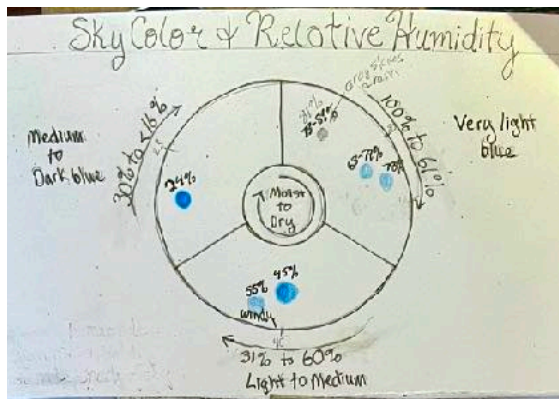 Sky Color & Relative Humidity
Medium
to
Dark blue
30% to <16%
24%
Gray Skies
& rain
100% to 61%
Very light
blue
78%
Moist
to
Dry
55%
45%
windy
31% to 60%
Light to Medium